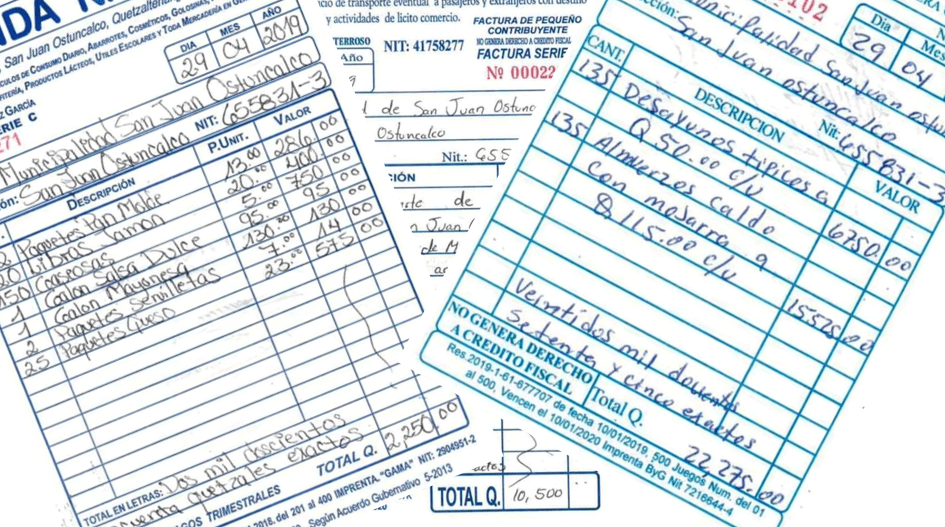 DA N
San Juan Ostuncalco, Quetzaltenan
CULOS DE CONSUMO DIARIO, ABARROTES, COSMÉTICOS, GOLOSINAS,
FITERÍA, PRODUCTOS LÁCTEOS, ÚTILES ESCOLARES Y TODA MERCADERÍA EN GE
Z GARCÍA
ERIE C
71
DIA MES AÑO
29 04 2019
Municipalidad San Juan Ostuncalco
ón: San Juan Ostuncalco NIT: 655831-3
DESCRIPCIÓN P.UNIT. VALOR
2 Paquetes Pan Molde 13.00 286.00
20 Libras Jamon 20.00 400.00
150 Gaseosas 5.00 750 00
1 Galon Salsa Dulce 95.00 95 00
1 Galon Mayonesa 130.00 130 00
2 Paquetes Servilletas 7.00 14 00
25 Paquetes Queso 23.00 575 00
TOTAL EN LETRAS: Dos mil doscientos
cuenta quetzales exactos. TOTAL Q. 2,250.00
GOS TRIMESTRALES
2018, del 201 al 400 IMPRENTA, "GAMA" NIT: 2904951-2
Según Acuerdo Gubernativo 5-2013
icio de transporte eventual a pasajeros y extranjeros con destino
y actividades de licito comercio.
FACTURA DE PEQUEÑO
CONTRIBUYENTE
NO GENERA DERECHO A CREDITO FISCAL
FACTURA SERIE
TERROSO NIT: 41758277
Año
Nº 00022
l de San Juan Ostunc
Ostuncalco
Nit.: 655
CIÓN
de
n Juan
de M
ar
actos
TOTAL Q. 10,500
102
Dia Mes
29 04
Municipalidad San Juan ostun
cción: San Juan ostuncalco Nit: 655831-3
CANT. DESCRIPCION VALOR
135 Desayunos tipicos a
Q.50.00 c/u 6750.00
135 Almuerzos caldo
con mojarra a
Q.115.00 c/u 15525.00
Veintidos mil doscientos
Setenta y cinco exactos
NO GENERA DERECHO
A CREDITO FISCAL Total Q. 22,275.00
Res.2019-1-61-677707 de fecha 10/01/2019, 500 Juegos Num. del 01
al 500, Vencen el 10/01/2020 Imprenta ByG Nit 7216644-4